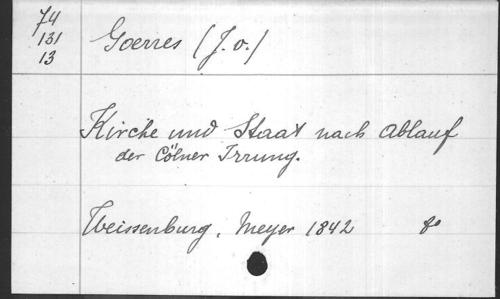 74
131
13
Goerres (J. v.)
Kirche und Staat nach Ablauf
der Cölner Irrung.
Weissenburg, Meyer 1842 8°